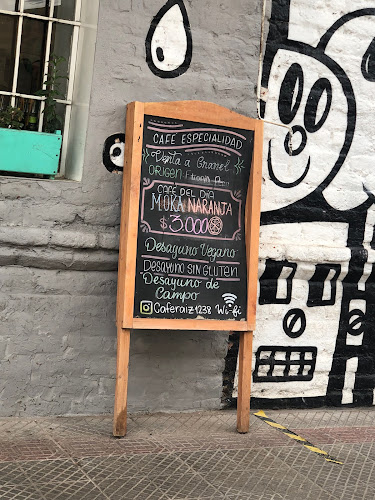 CAFÉ ESPECIALIDAD
Venta a Granel
ORIGEN:
CAFÉ DEL DÍA
MOKA NARANJA
$3.000
Desayuno Vegano
Desayuno SIN GLUTEN
Desayuno de
Campo
Caferaiz1238 Wi-fi